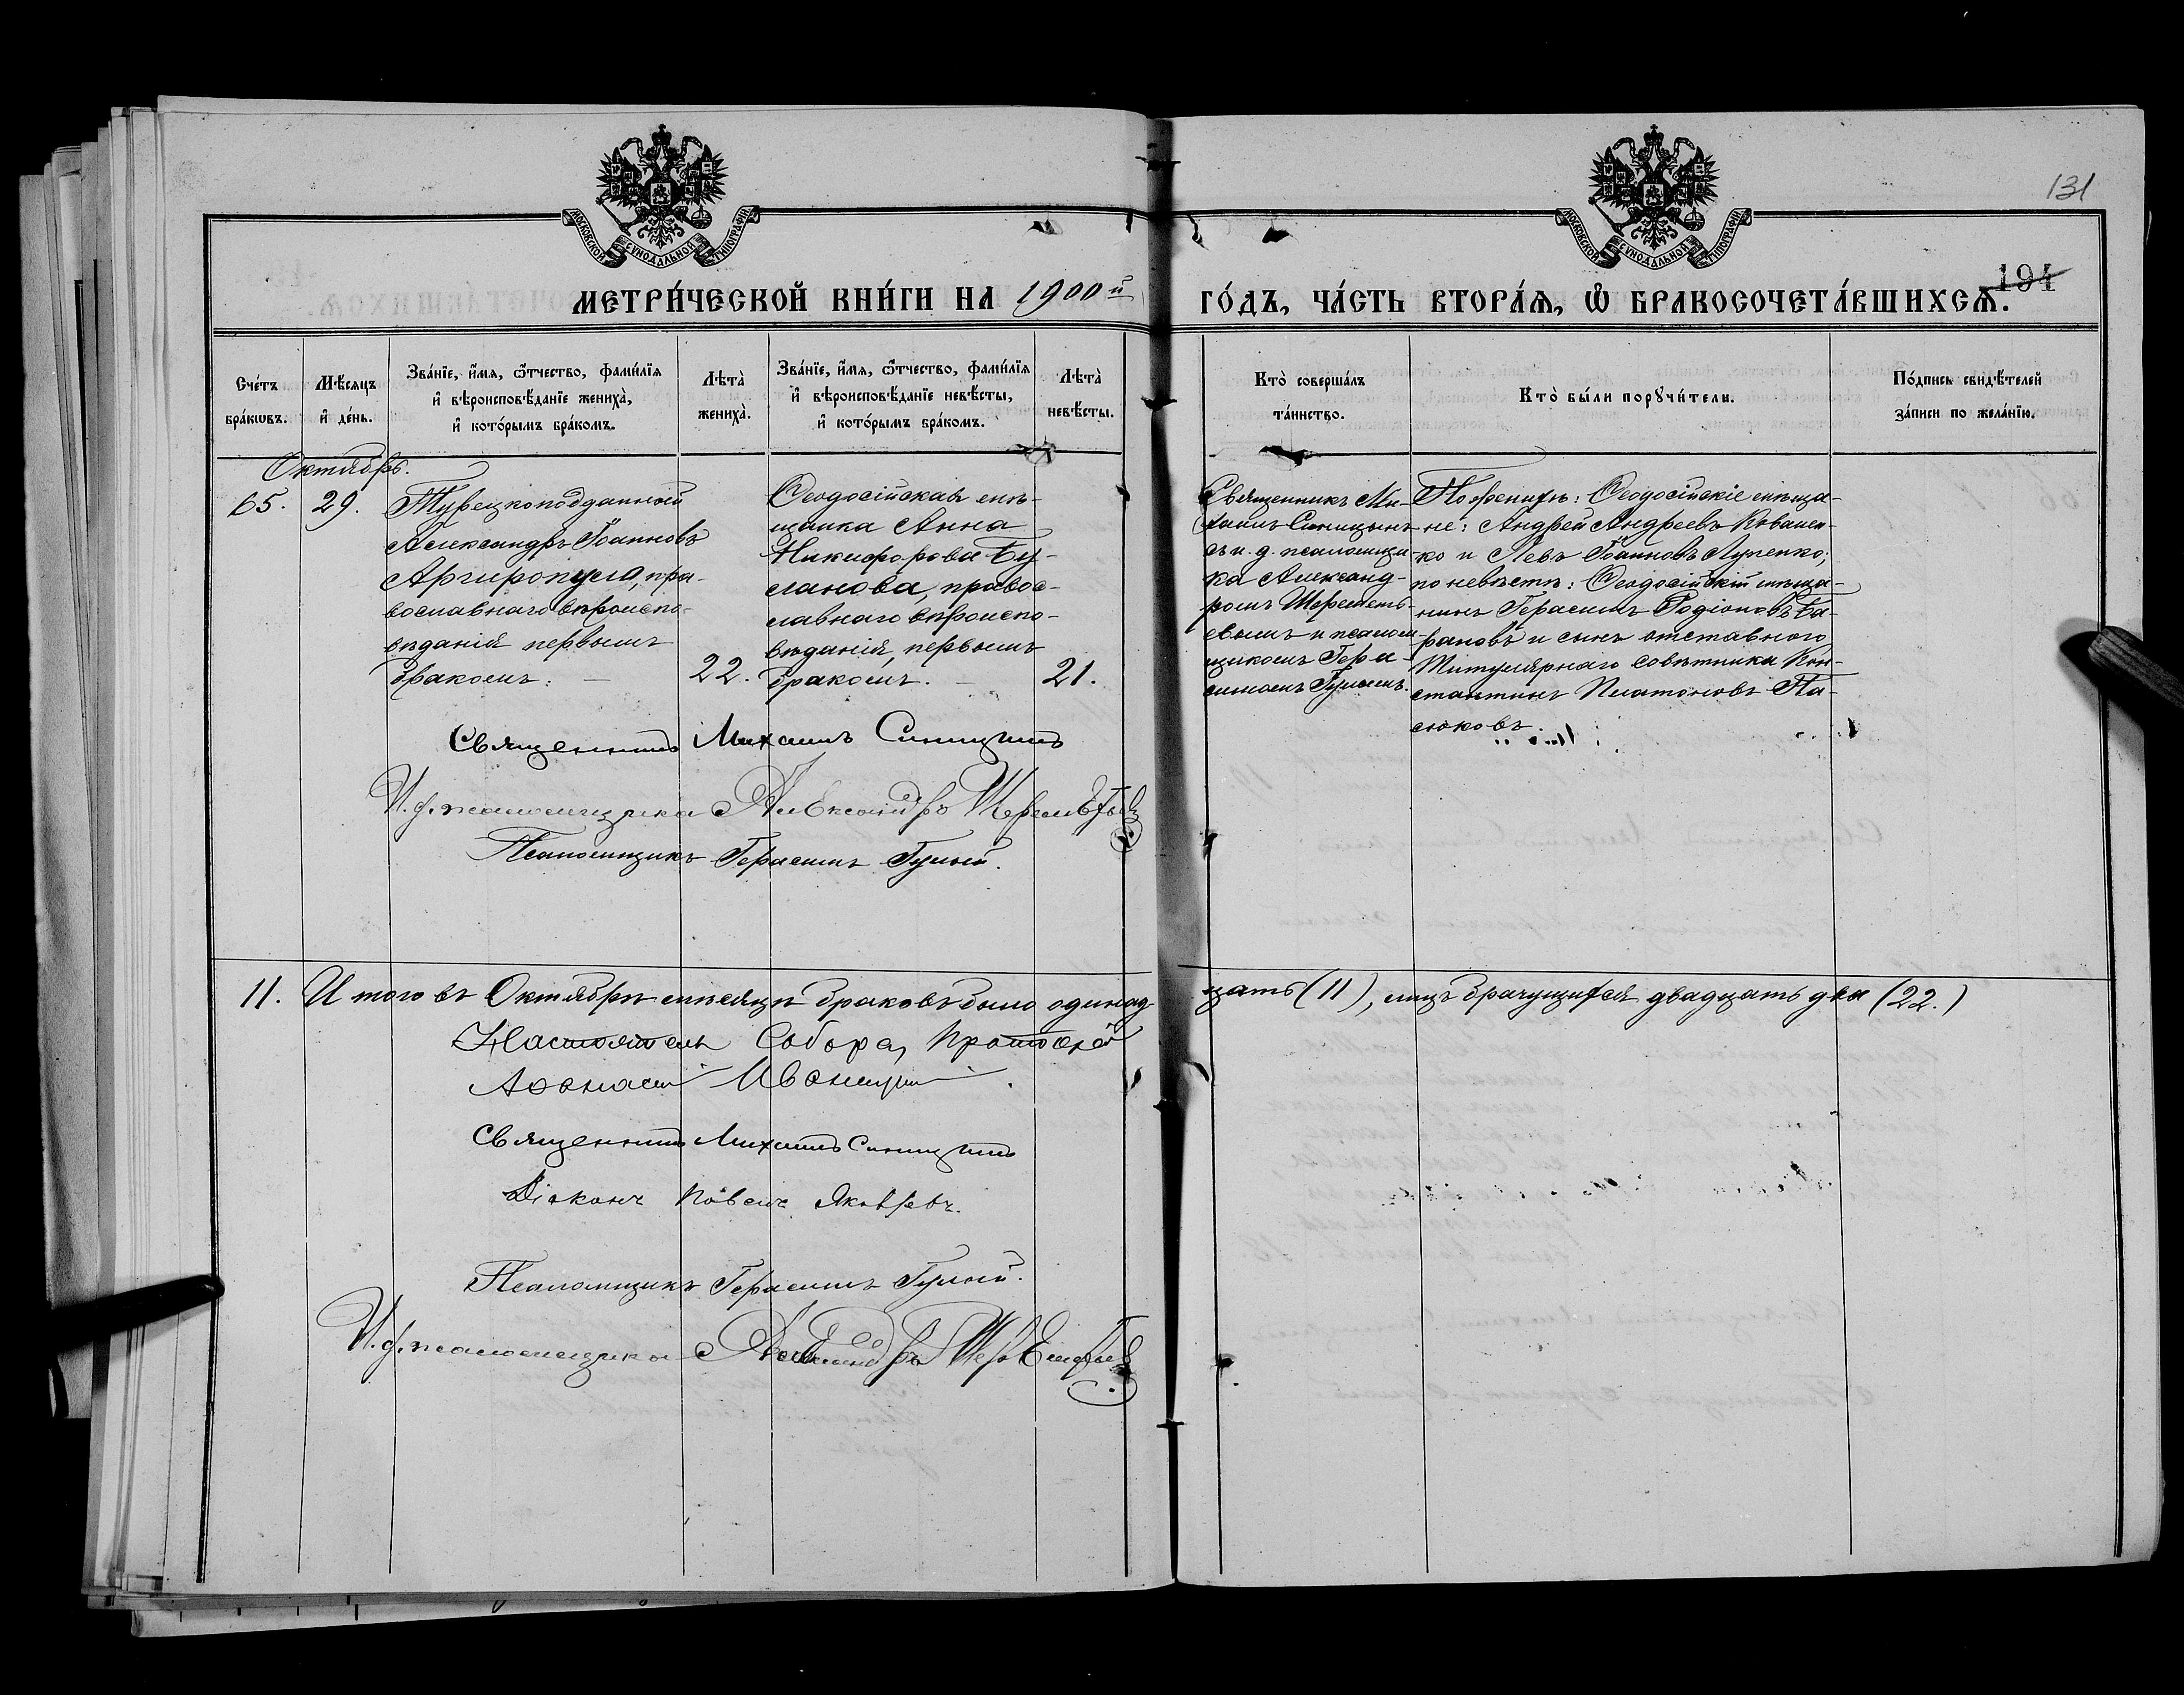 131
194
МОСКОВСКОЙ СѴНОДАЛЬНОЙ ТИПОГРАФІИ
МОСКОВСКОЙ СѴНОДАЛЬНОЙ ТИПОГРАФІИ
МЕТРИ́ЧЕСКОЙ КНИ́ГИ НА 1900й
ГО́ДЪ, ЧА́СТЬ ВТОРА́Ѧ, Ѽ БРАКОСОЧЕТА́ВШИХСѦ.
Сче́тъ
бра́кѡвъ.
Мѣ́сяцъ
и҆ де́нь.
Зва́нїе, и҆́мя, ѻ҆́тчество, фами́лїя
и҆ вѣроисповѣ́данїе жениха̀,
и҆ кото́рымъ бра́комъ.
Лѣта̀
жениха̀.
Зва́нїе, и҆́мя, ѻ҆́тчество, фами́лїя
и҆ вѣроисповѣ́данїе невѣ́сты,
и҆ кото́рымъ бра́комъ.
Лѣта̀
невѣ́сты.
Кто̀ соверша́лъ
та́инство.
Кто̀ бы́ли порꙋчи́тели.
По́дпись свидѣ́телей
за́писи по жела́нїю.
Октябрь.
65.
29.
Турецкоподданный
Александръ Іоанновъ
Аргиропуло, пра-
вославнаго вѣроиспо-
вѣданія первымъ
бракомъ. —
22.
Ѳеодосійская мѣ-
щанка Анна
Никифорова Бу-
ланова, правос-
лавнаго вѣроиспо-
вѣданія, первымъ
бракомъ. —
21.
Священникъ Ми-
хаилъ Синицынъ
съ и. д. псаломщи-
ка Александ-
ромъ Шереметь-
евымъ и псалом-
щикомъ Гера-
симомъ Гулымъ.
По женихѣ: Ѳеодосійскіе мѣща-
не: Андрей Андреевъ Ковален-
ко и Левъ Іоанновъ Лупенко;
по невѣстѣ: Ѳеодосійскій мѣща-
нинъ Герасимъ Родіоновъ Ба-
рановъ и сынъ отставного
Титулярнаго совѣтника Кон-
стантинъ Платоновъ Па-
сюковъ.
Священникъ Михаилъ Синицынъ
И. д. псаломщика Александръ Шереметьевъ
Псаломщикъ Герасимъ Гулый.
11. Итого въ Октябрѣ мѣсяцѣ браковъ было одинад-
цать (11), лицъ брачущихся двадцать два (22.)
Настоятель Собора, Протоіерей
Священникъ Михаилъ Синицынъ
Діаконъ Павелъ Яковлевъ.
Псаломщикъ Герасимъ Гулый.
И. д. псаломщика Александръ Шереметьевъ